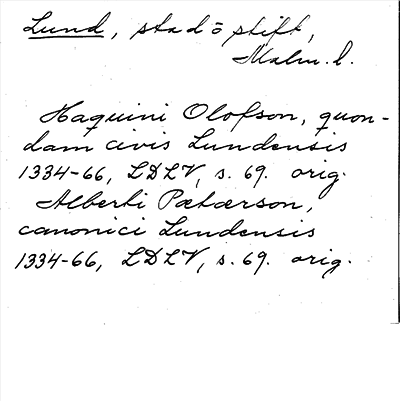 Lund, stad o stift,
Malm. l.
Haquini Olofson, quon-
dam civis Lundensis
1334-66, LDLV, s. 69. orig.
Alberti Pætærson,
canonici Lundensis
1334-66, LDLV, s. 69. orig.